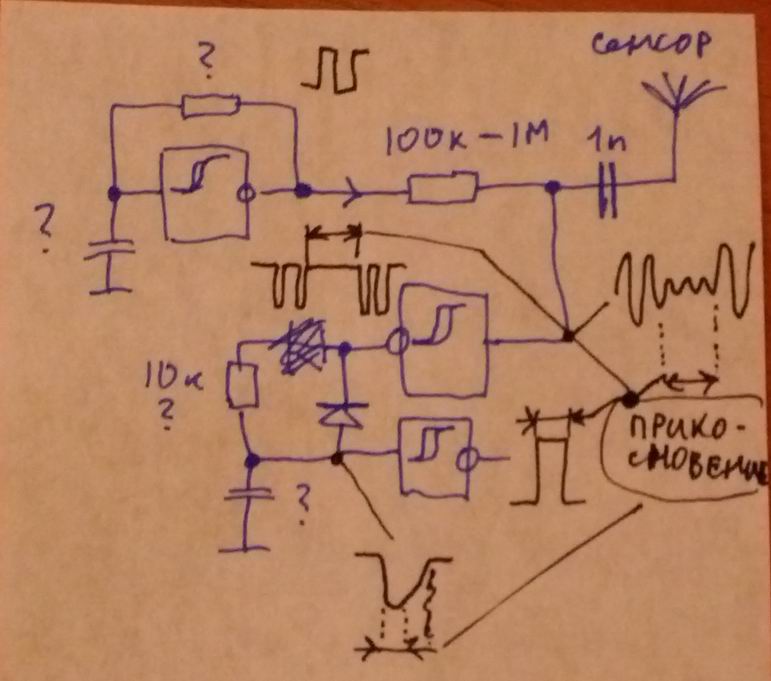 сенсор
?
100к – 1М
1n
?
10к
?
?
ПРИКО-
СНОВЕНИЕ